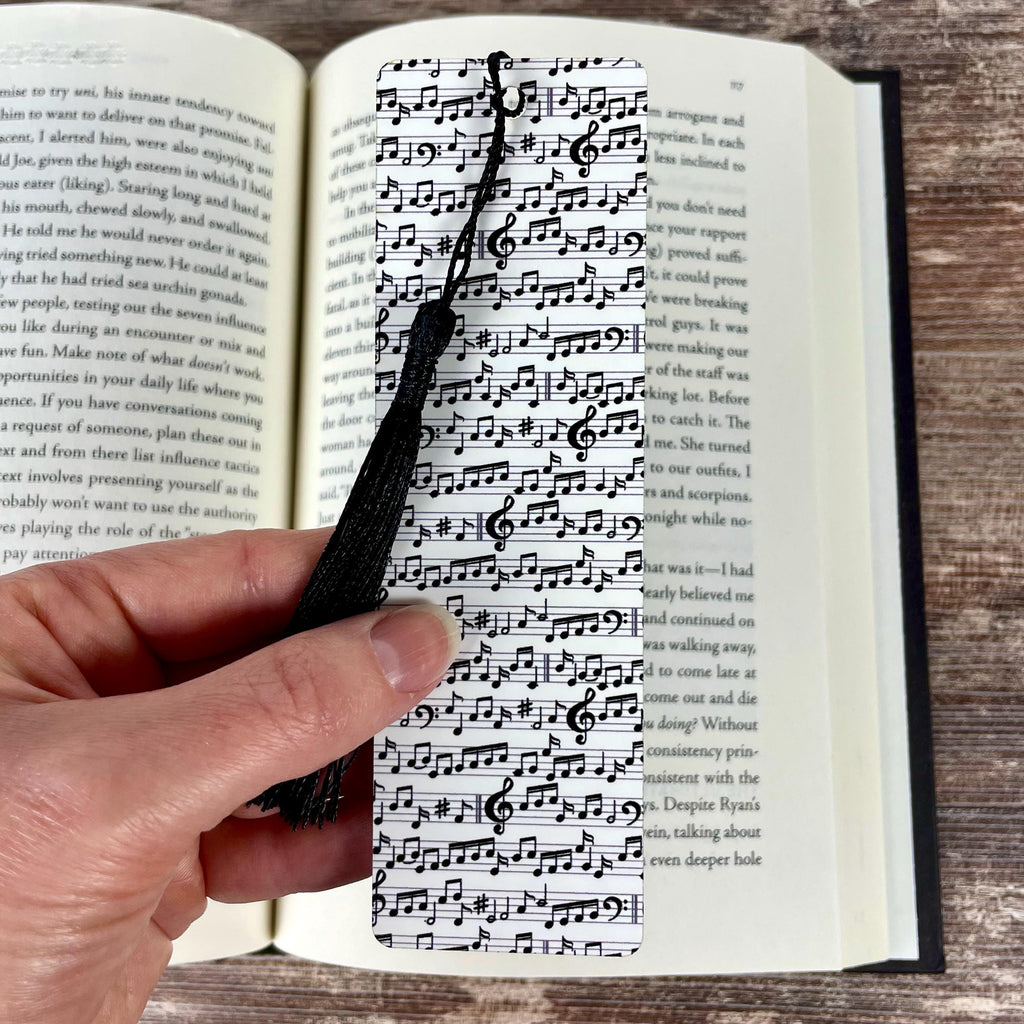 mise to try uni, his innate tendency toward
him to want to deliver on that promise. Ful-
scent, I alerted him, were also enjoying uni
ld Joe, given the high esteem in which I held
ous eater (liking). Staring long and hard at
his mouth, chewed slowly, and swallowed.
He told me he would never order it again,
ving tried something new. He could at least
y that he had tried sea urchin gonads.
few people, testing out the seven influence
you like during an encounter or mix and
ave fun. Make note of what doesn't work.
pportunities in your daily life where you
uence. If you have conversations coming
a request of someone, plan these out in
ext and from there list influence tactics
text involves presenting yourself as the
robably won't want to use the authority
ves playing the role of the
pay attention
arrogant and
smug. ropriate. In each
of these less inclined to
help you
In the d you don't need
to mobiliz ce your rapport
building ( g) proved suffi-
cient. In 't, it could prove
fatal, as it We were breaking
into a bui rol guys. It was
eleven thir were making our
way around r of the staff was
leaving the king lot. Before
the door to catch it. The
woman ha d me. She turned
around, to our outfits, I
said, rs and scorpions.
Just onight while no-
hat was it—I had
early believed me
and continued on
was walking away,
d to come late at
come out and die
u doing? Without
consistency prin-
onsistent with the
ys. Despite Ryan's
vein, talking about
even deeper hole